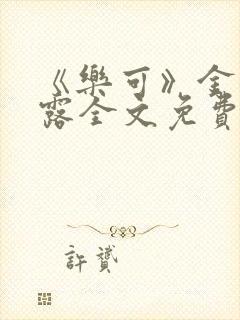 《樂可》金
露全文免費
許贇